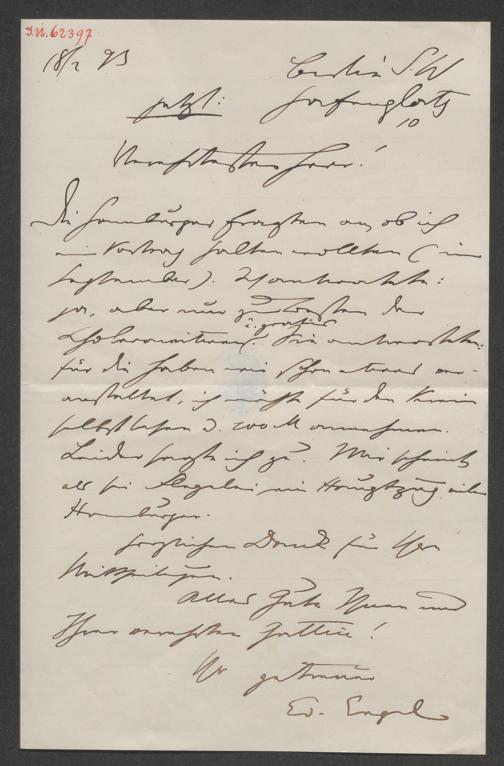 I.N. 62397
18/2 93
Berlin SW
jetzt: Hafenplatz
10
Verehrtester Herr!
Die Hamburger fragten an, ob ich
ein Vortrag halten wollte (im
September). Ich antwortete:
ja, aber nur zu Gunsten der
u. gratis
Cholerawaisen. Sie antworteten:
für die haben wir schon etwas ver-
anstaltet, ich müßte für den Verein
selbst lesen u. 200 M annehmen.
Leider sagte ich zu. Mir scheint
als sei Flegelei ein Hauptzug vieler
Hamburger.
Herzlichen Dank für Ihre
Mittheilungen.
Alles Gute Ihnen und
Ihrer verehrten Gattin!
Ihr getreuer
Ed. Engel